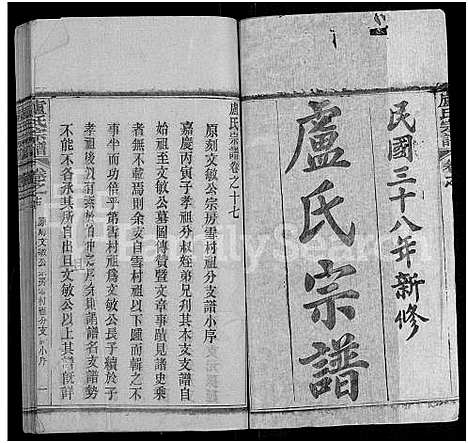 盧氏宗譜
民國三十八年新修
盧氏宗譜
盧氏宗譜卷之十七
原刻文敏公宗房雪村祖分支譜小序
嘉慶丙寅子孝祖分叔姪弟兄刋其木支支譜自
始祖至文敏公墓圖傳贊暨文章事蹟見諸史乘
者無不載焉則余支自雪村祖以下匯而輯之不
事半而功倍乎第雪村祖爲文敏公長子續於子
孝祖後則自
世之
則誦譜名支譜勢
不能不各承其所自出且文敏公以上其
盧氏宗譜
卷之十七
原刻文敏公宗房雪村祖分支譜小序
一
FamilySearch